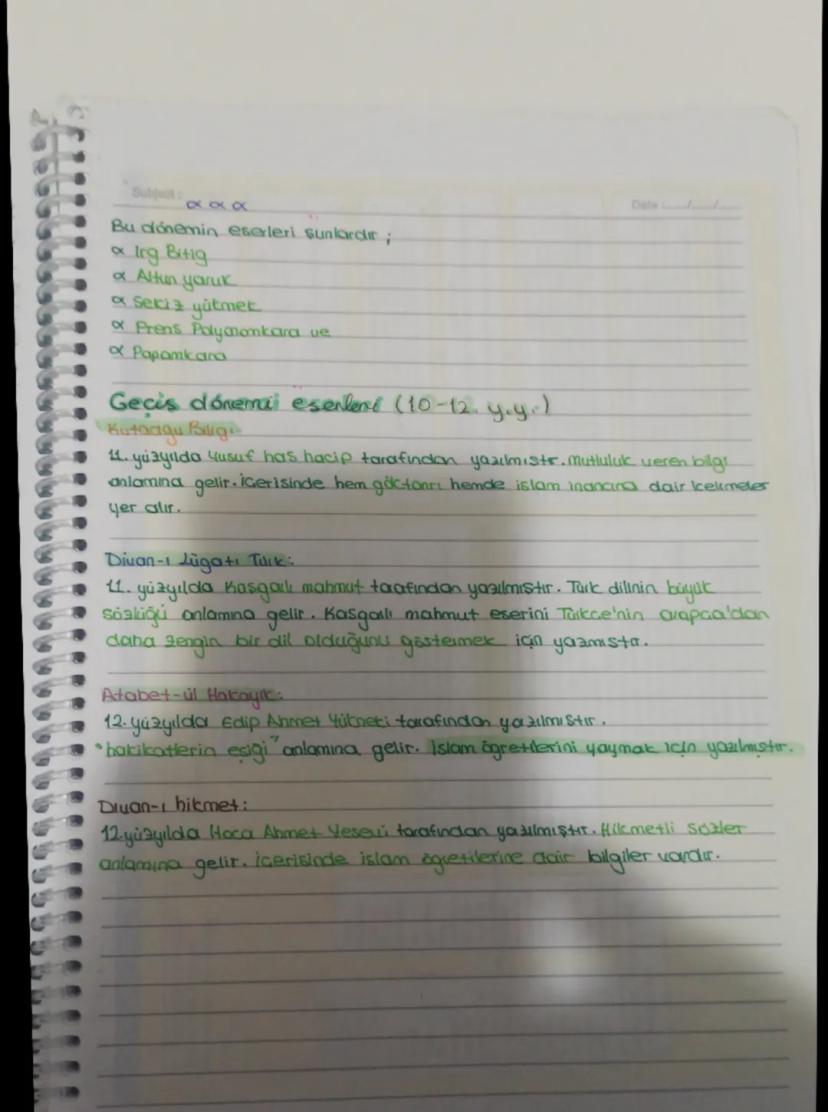 Subject:
α α α
Date : ..../..../....
Bu dönemin eserleri şunlardır ;
α Irg Bitig
α Altun yaruk
α Sekiz yükmek
α Prens Polyanomkara ve
α Papamkara
Geçiş dönemi eserleri (10-12. y.y.)
Kutadgu Bilig:
11. yüzyılda Yusuf has hacip tarafından yazılmıştır. Mutluluk veren bilgi
anlamına gelir. İçerisinde hem göktanrı hemde islam inancına dair kelimeler
yer alır.
Divan-ı Lügatı Türk:
11. yüzyılda Kaşgarlı mahmut tarafından yazılmıştır. Türk dilinin büyük
sözlüğü anlamına gelir. Kaşgarlı mahmut eserini Türkçe'nin arapça'dan
daha zengin bir dil olduğunu göstermek için yazmıştır.
Atabet-ül Hakayık:
12. yüzyılda Edip Ahmet Yükneki tarafından yazılmıştır.
"hakikatlerin eşiği" anlamına gelir. İslam öğretilerini yaymak için yazılmıştır.
Dıvan-ı hikmet:
12.yüzyılda Hoca Ahmet Yesevi tarafından yazılmıştır. Hikmetli sözler
anlamına gelir. İçerisinde islam öğretilerine dair bilgiler vardır.